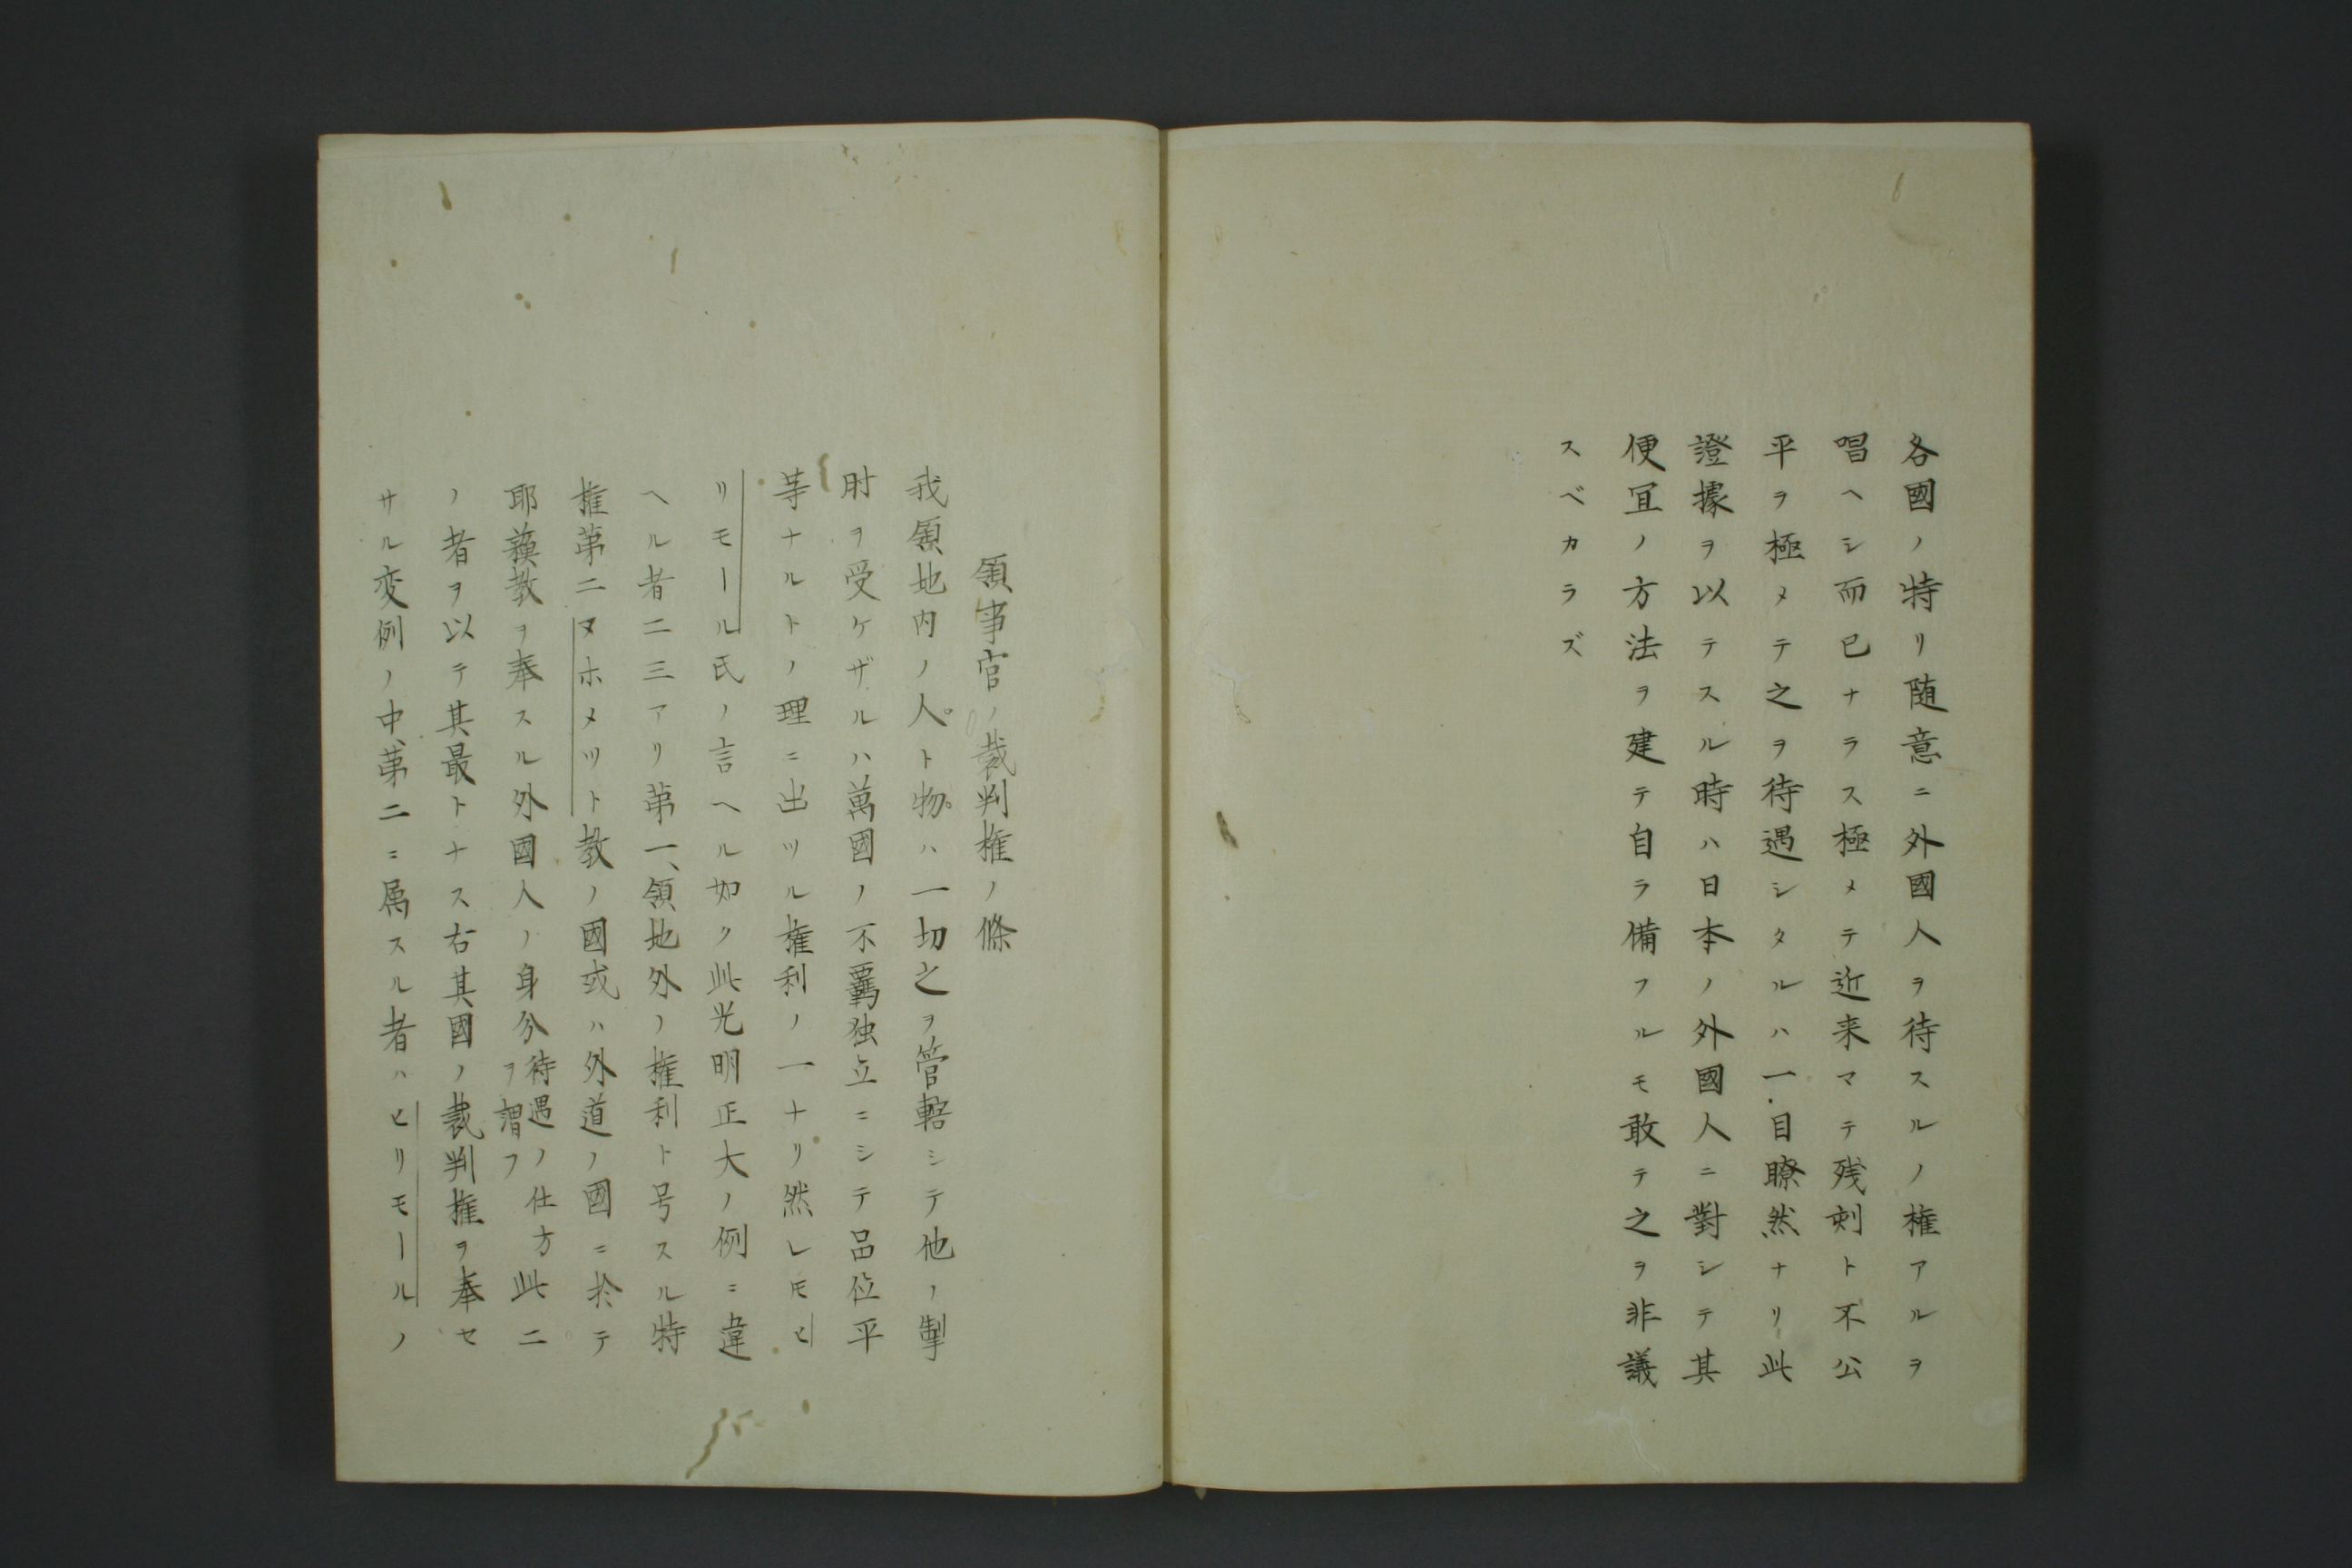 各國ノ特リ随意ニ外國人ヲ待スルノ権アルヲ
唱ヘシ而已ナラス極メテ近来マテ残刻ト不公
平ヲ極メテ之ヲ待遇シタルハ一目瞭然ナリ此
證據ヲ以テスル時ハ日本ノ外國人ニ對シテ其
便宜ノ方法ヲ建テ自ラ備フルモ敢テ之ヲ非議
スベカラズ
領事官ノ裁判権ノ條
我領地内ノ人ト物ハ一切之ヲ管轄シテ他ノ掣
肘ヲ受ケザルハ萬國ノ不羈独立ニシテ品位平
等ナルトノ理ニ出ツル権利ノ一ナリ然レ𪜈ヒ
リモール氏ノ言ヘル如ク此光明正大ノ例ニ違
ヘル者二三アリ第一、領地外ノ権利ト号スル特
権第二マホメツト教ノ國或ハ外道ノ國ニ於テ
耶蘓教ヲ奉スル外國人ノ身分待遇ノ仕方ヲ謂フ此二
ノ者ヲ以テ其最トナス右其國ノ裁判権ヲ奉セ
サル変例ノ中、第二ニ属スル者ハヒリモールノ